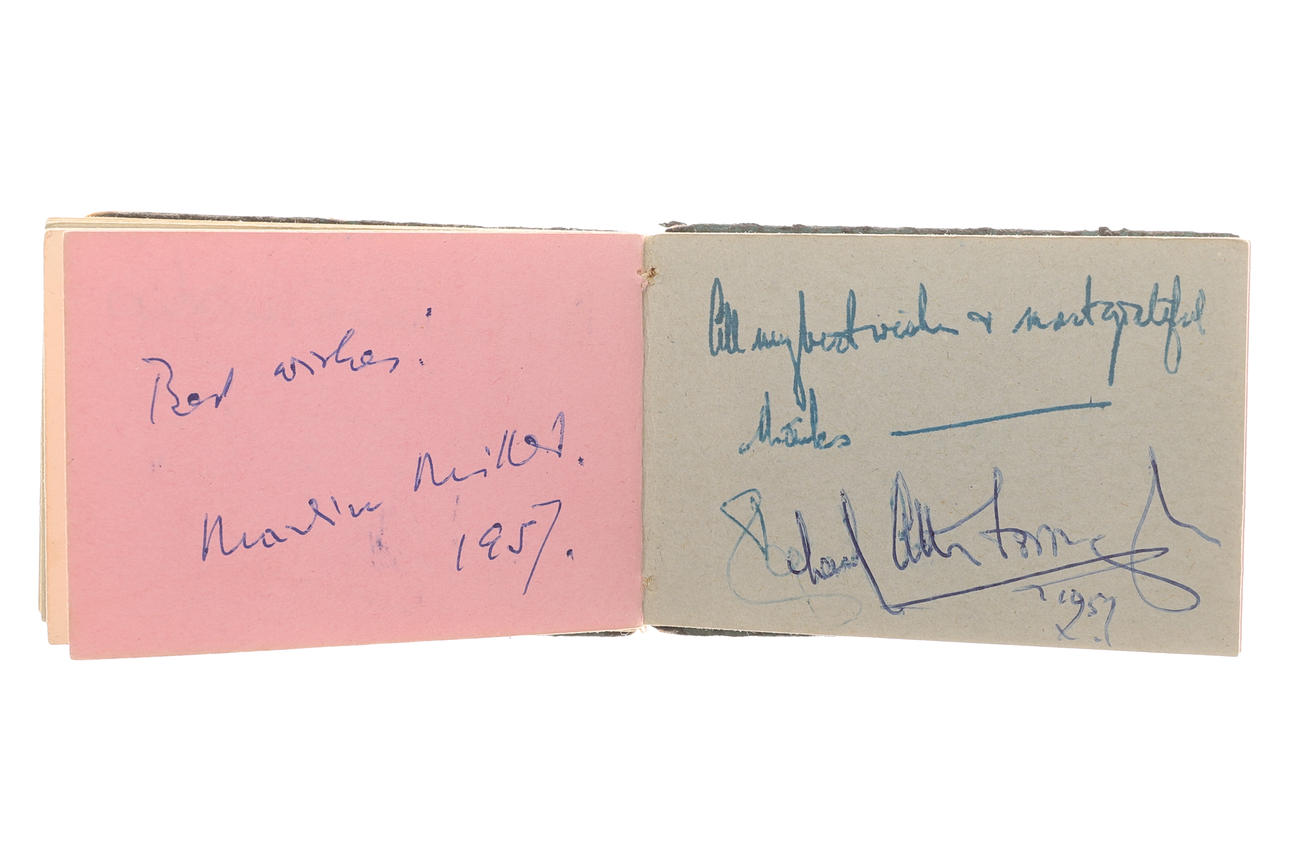 Best wishes!
Martin Miller.
1957.
All my best wishes & most grateful
thanks
Richard Attenborough
1957